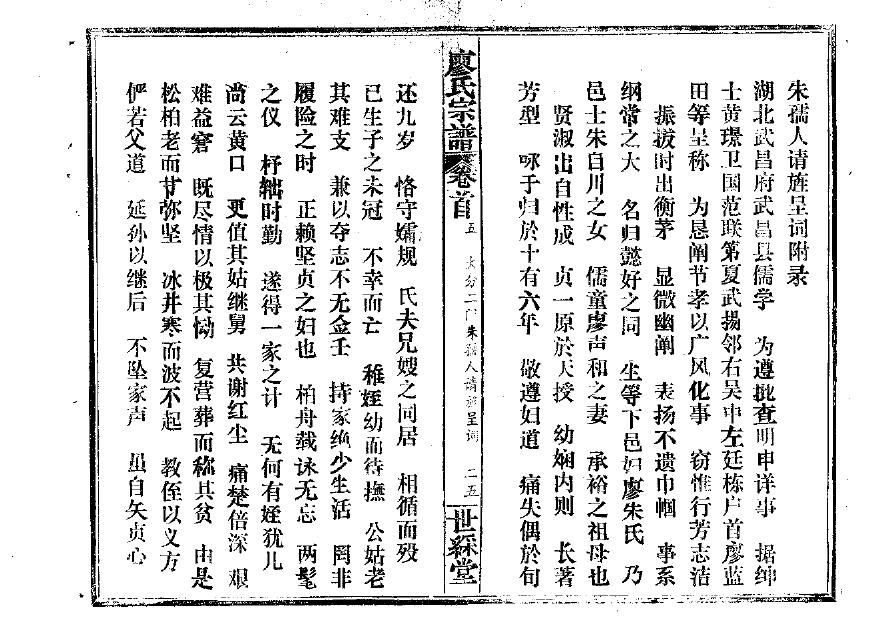 朱孺人请旌呈词附录
湖北武昌府武昌县儒学 为遵批查明申详事 据绅
士黄璟卫国范联第夏武扬邻右吴申左廷栋户首廖蓝
田等呈称 为恳阐节孝以广风化事 窃惟行芳志洁
振拔时出衡茅 显微幽阐 表扬不遗巾帼 事系
纲常之大 名归懿好之同 生等下邑妇廖朱氏 乃
邑士朱自川之女 儒童廖声和之妻 承裕之祖母也
贤淑出自性成 贞一原於天授 幼娴内则 长著
芳型 咏于归於十有六年 敬遵妇道 痛失偶於旬
廖氏宗谱 卷首 五 大分二门朱孺人请旌呈词 二五 世綵堂
还九岁 恪守孀规 氏夫兄嫂之同居 相循而殁
已生子之未冠 不幸而亡 稚姪幼而待抚 公姑老
其难支 兼以夺志不无佥壬 持家绝少生活 罔非
履险之时 正赖坚贞之妇也 柏舟载咏无忘 两髦
之仪 杼轴时勤 遂得一家之计 无何有姪犹儿
尚云黄口 更值其姑继舅 共谢红尘 痛楚倍深 艰
难益窘 既尽情以极其恸 复营葬而称其贫 由是
松柏老而甘弥坚 冰井寒而波不起 教侄以义方
俨若父道 延孙以继后 不坠家声 虽自矢贞心